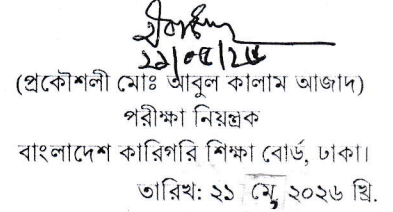 ২১/০৫/২৬
(প্রকৌশলী মোঃ আবুল কালাম আজাদ)
পরীক্ষা নিয়ন্ত্রক
বাংলাদেশ কারিগরি শিক্ষা বোর্ড, ঢাকা।
তারিখ: ২১ মে, ২০২৬ খ্রি.